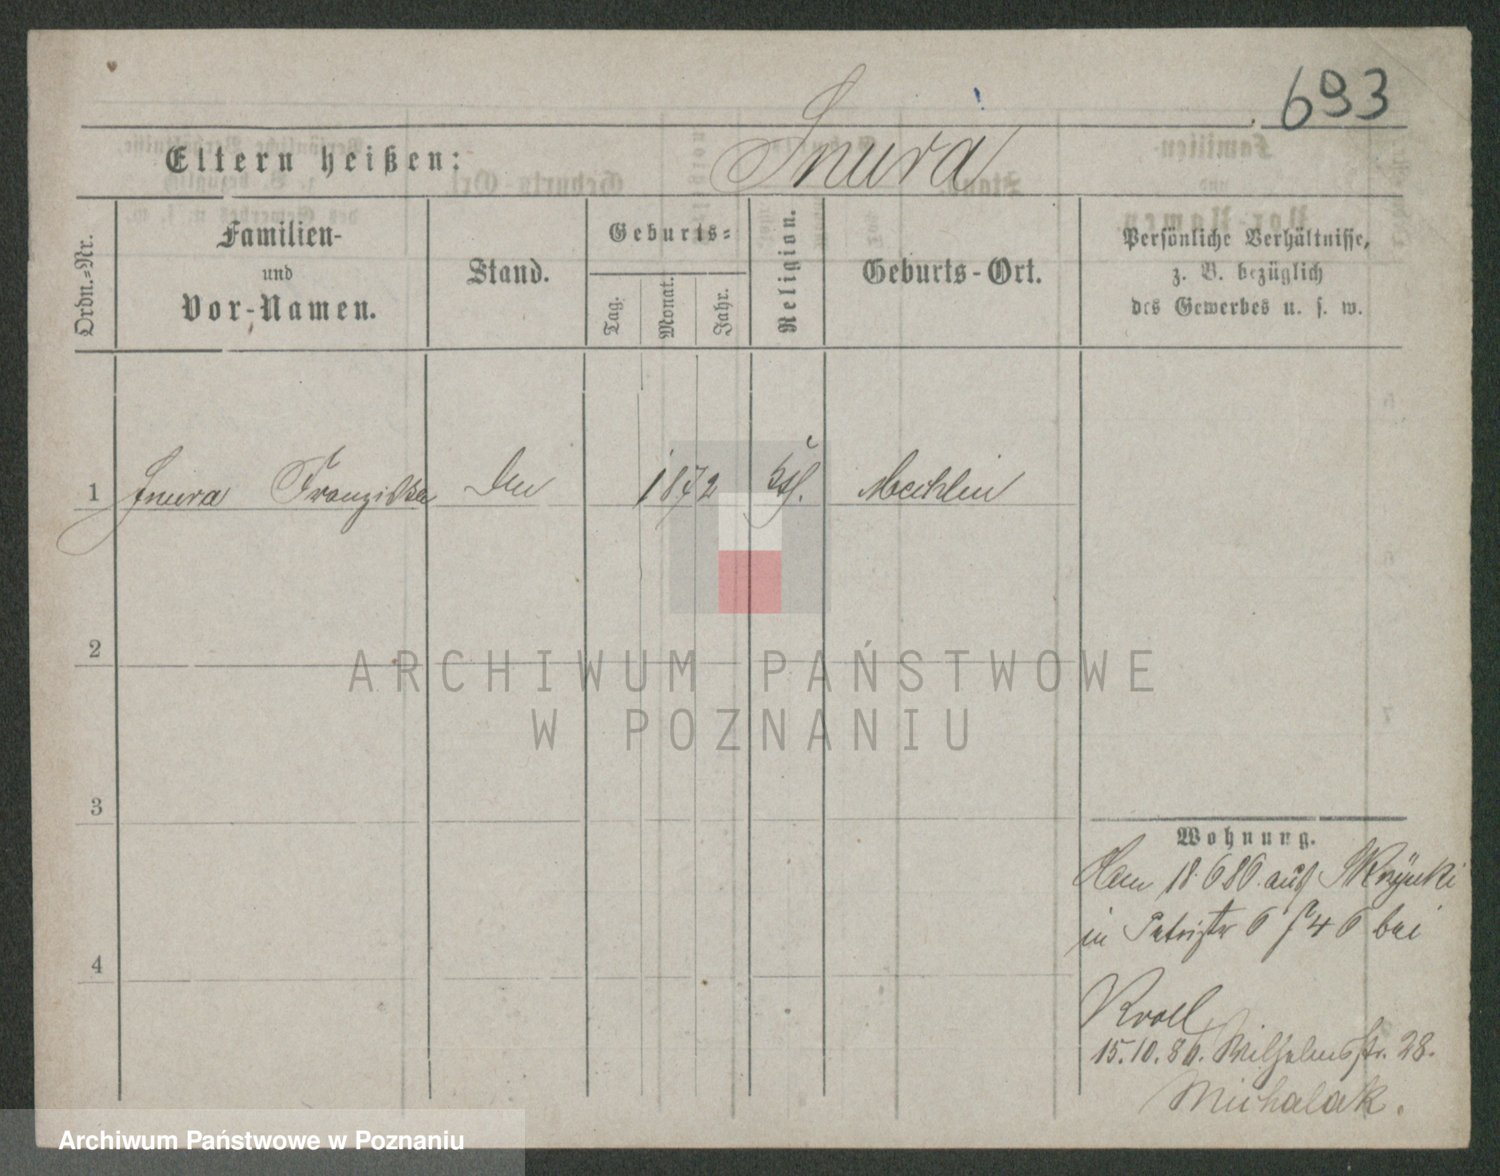 693
Eltern heißen: Snura
Ordn.=Nr.
Familien-
und
Vor-Namen.
Stand.
Geburts=
Tag.
Monat.
Jahr.
Religion.
Geburts-Ort.
Persönliche Verhältnisse,
z. B. bezüglich
des Gewerbes u. s. w.
1 Snura Franziska 1872 Mechlin
2
3
4
Wohnung.
18.6 86. aus
in 6 bei
Kroll
15.10.86. Wilhelmsstr. 28.
Michalak.
ARCHIWUM PAŃSTWOWE
W POZNANIU
Archiwum Państwowe w Poznaniu